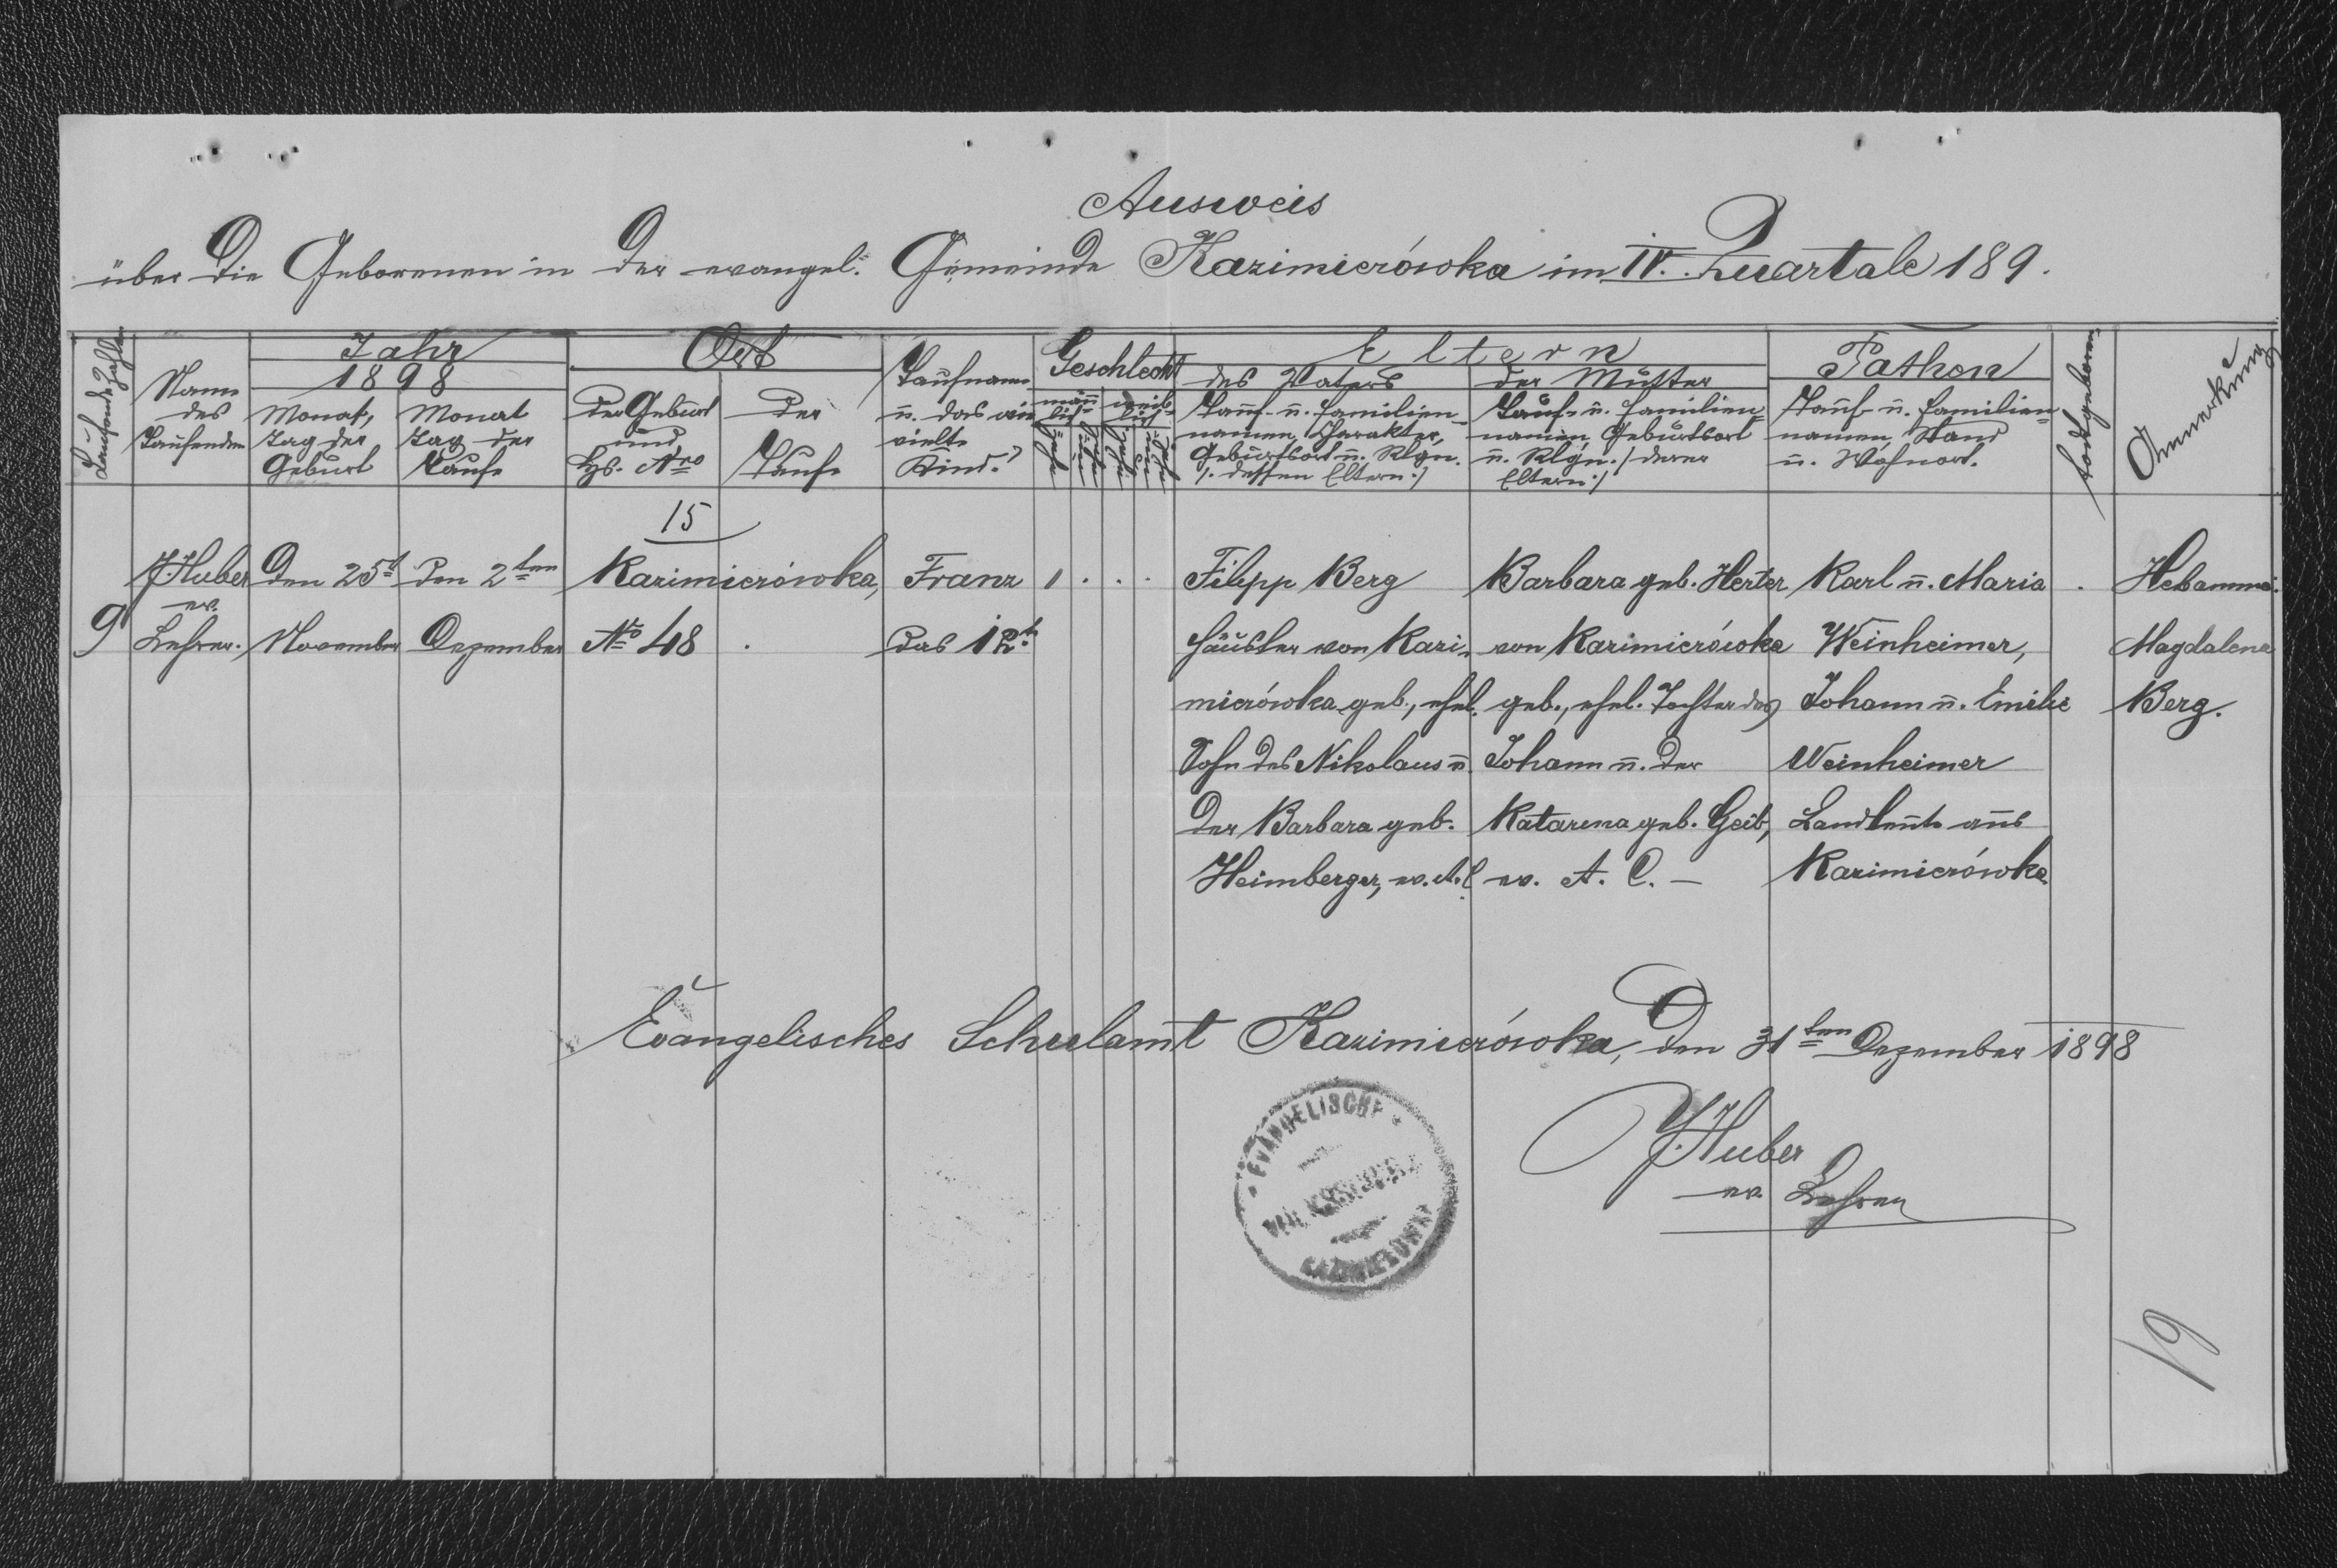 Ausweis
über die Geborenen in der evangel. Gemeinde Kazimierówka im IV. Quartale 189 .
Laufende Zahl
Name
des
Taufenden
Jahr
1898
Monat,
Tag der
Geburt
Monat
Tag der
Taufe
Ort
der Geburt
und
Hs. Nro
Der
Taufe
Taufname
u. das wie
vielte
Kind?
Geschlecht
männ
lich
weib-
lich
Eltern
des Vaters
Tauf- u. Familien-
namen, Charakter,
Geburtsort u. Rlgn.
/: dessen Eltern :/
der Mutter
Tauf- u. Familien-
namen, Geburtsort
u. Rlgn. /: derer
Eltern :/
Pathen
Tauf- u. Familien-
namen, Stand
u. Wohnort.
todtgeboren
Anmerkung
15
9
J. Huber
ev.
Lehrer.
Den 25t
November
Den 2ten
Dezember
Kazimierówka,
No 48
Franz
das 12t
1 . . .
Filipp Berg
Häusler von Kazi-
mierówka geb., ehel.
Sohn des Nikolaus u.
der Barbara geb.
Heimberger, ev. A. C.
Barbara geb. Herter
von Kazimierówka
geb., ehel. Tochter des
Johann u. der
Katarina geb. Geib,
ev. A. C. –
Karl u. Maria
Weinheimer,
Johann u. Emilie
Weinheimer
Landleute aus
Kazimierówka
Hebamme:
Magdalena
Berg.
Evangelisches Schulamt Kazimierówka, den 31ten Dezember 1898
J. Huber
ev. Lehrer
EVANGELISCHE
19